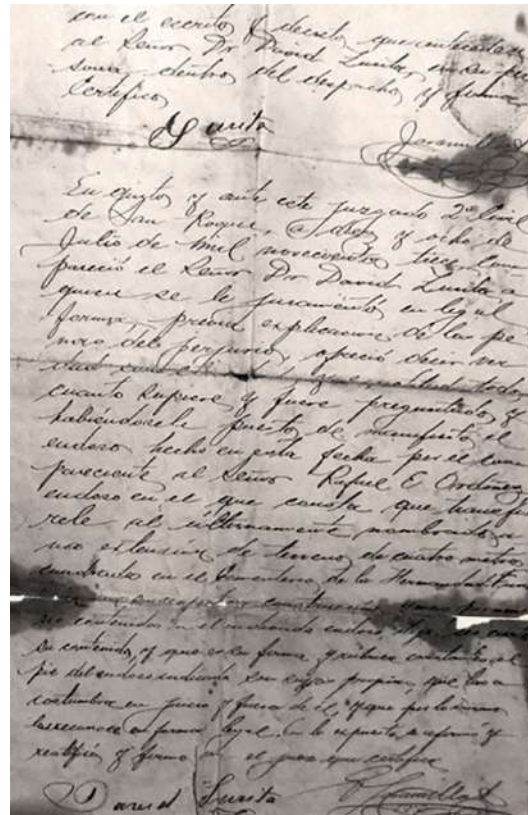 con el escrito y decreto que anteceden
al Señor Dr. David Zurita, en su per
sona, dentro del despacho y firma
Certifico
Zurita
Jaramillo
En Quito y ante este juzgado 2º Civil
de San Roque, a diez y ocho de
Julio de mil novecientos trece, com
pareció el Señor Dr David Zurita a
quien se le juramentó en legal
forma, previa explicación de las pe
nas del perjurio, ofreció decir ver
dad todo
cuanto supiere y fuere preguntado, y
habiéndosele puesto de manifiesto el
endoso hecho en esta fecha por el com
pareciente al Señor Rafael E. Ordóñez
endoso en el que consta que transfi
rele al últimamente nombrado
una extensión de terreno de cuatro metros
cuadrados en el Cementerio de la Hermandad
contenidas en el endoso, dijo
su contenido, y que la firma y rúbrica constantes al
pie del endoso son suyas propias, que las
costumbra en juicio y fuera de él, y que por lo mismo
las reconoce en forma legal. En lo expuesto se afirmó y
ratificó y firma con el juez que certifica
David Zurita
Jaramillo